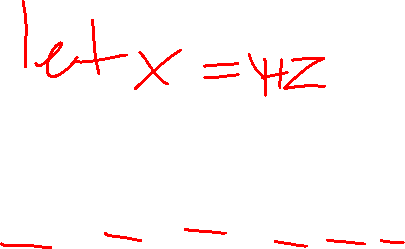 let x = y+z